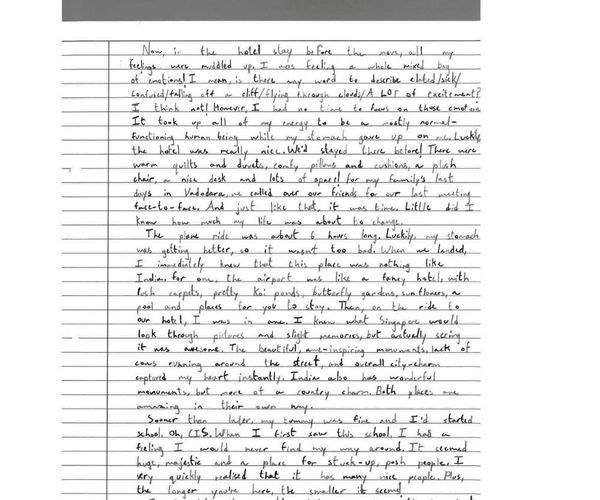 Now, in the hotel stay before the move, all my
feelings were muddled up. I was feeling a whole mixed bag
of emotions! I mean, is there any word to describe elated/sick/
confused/falling off a cliff/flying through clouds/A LOT of excitement?
I think not! However, I had no time to focus on those emotions
It took up all of my energy to be a mostly normal-
functioning human being while my stomach gave up on me. Luckily,
the hotel was really nice. We'd stayed there before! There were
warm quilts and duvets, comfy pillows and cushions, a plush
chair, a nice desk and lots of space! For my family's last
days in Vadodara, we called over our friends for our last meeting
face-to-face. And just like that, it was time. Little did I
know how much my life was about to change.
The plane ride was about 6 hours long. Luckily, my stomach
was getting better, so it wasn't too bad. When we landed,
I immediately knew that this place was nothing like
India. For one, the airport was like a fancy hotel, with
lush carpets, pretty Koi ponds, butterfly gardens, sunflowers, a
pool and places for you to stay. Then, on the ride to
our hotel, I was in awe. I knew what Singapore would
look through pictures and slight memories, but actually seeing
it was awesome. The beautiful, awe-inspiring monuments, lack of
cows running around the street, and overall city-charm
captured my heart instantly. India also has wonderful
monuments, but more of a country charm. Both places are
amazing in their own way.
Sooner than later, my tummy was fine and I'd started
school. Oh, CIS. When I first saw this school, I had a
feeling I would never find my way around. It seemed
huge, majestic and a place for stuck-up, posh people. I
very quickly realised that it has many nice people. Plus,
the longer you're here, the smaller it seems!